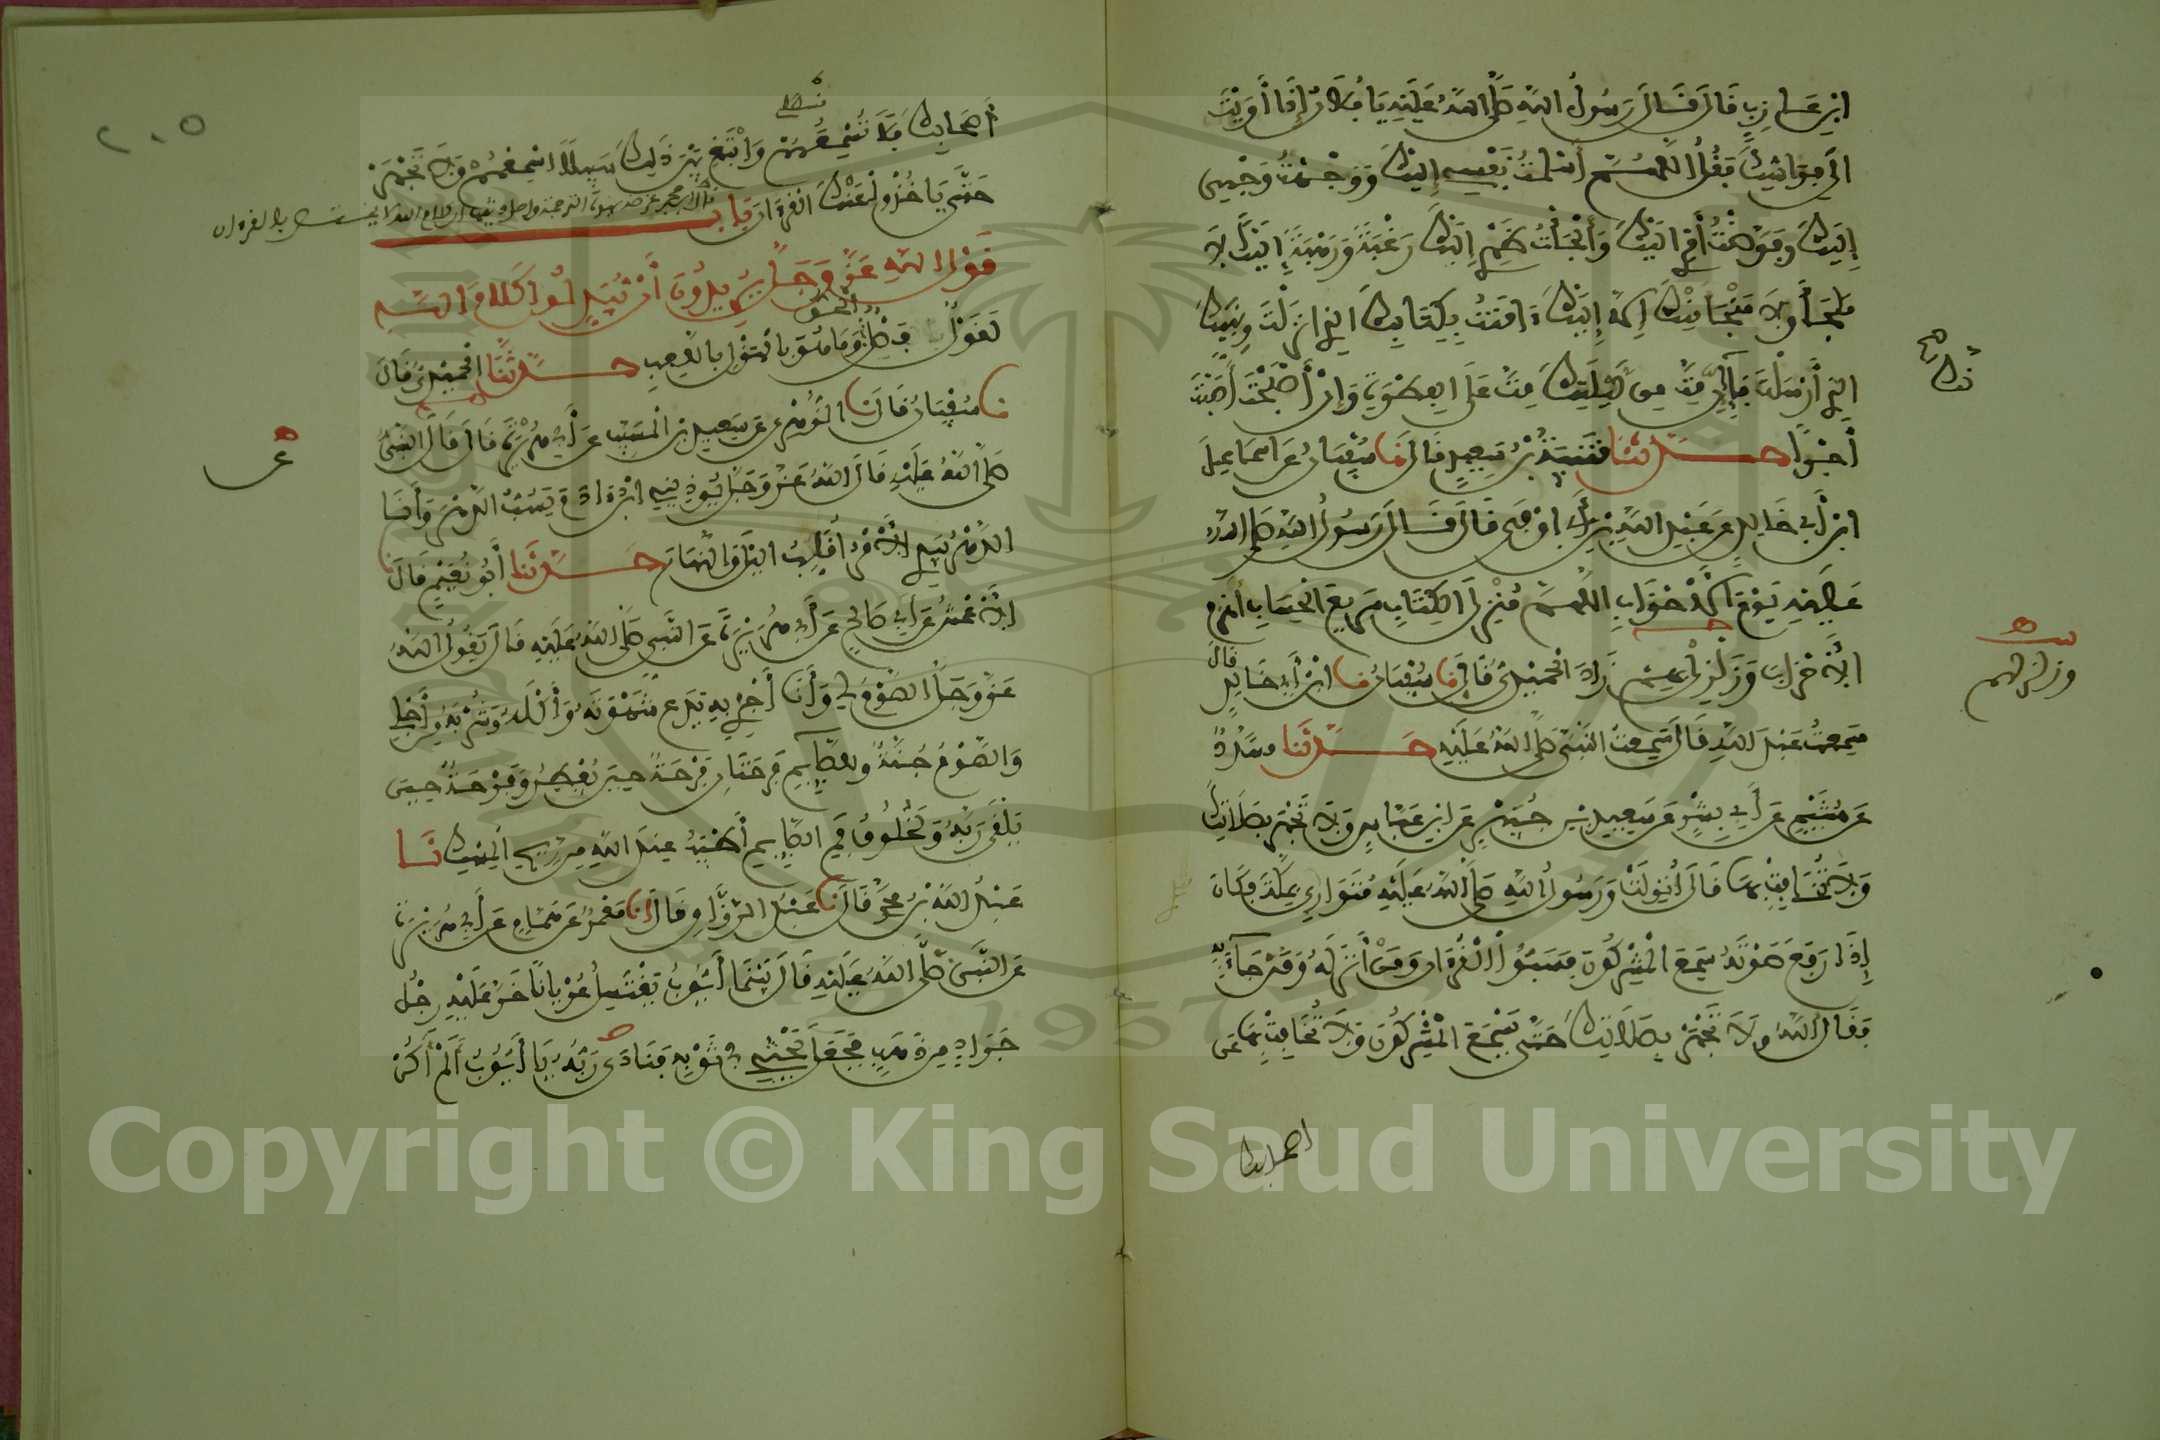 ابن عازب قال قال رسول الله صلى الله عليه يا فلان إذا أويت
إلى فراشك فقل اللهم أسلمت نفسي إليك ووجهت وجهي
إليك وفوضت أمري إليك وألجأت ظهري إليك رغبة ورهبة إليك لا
ملجأ ولا منجا منك إلا إليك ءامنت بكتابك الذي انزلت وبنبيك
الذي أرسلت فإنك إن مت في ليلتك مت على الفطرة وإن أصبحت أصبت
أجرا حدثنا قتيبة بن سعيد قال نا سفيان عن اسماعيل
ابن أبي خالد عن عبد الله بن أبي اوفى قال قال رسول الله صلى الله
عليه يوم الأحزاب اللهم منزل الكتاب سريع الحساب اهزم
الأحزاب وزلزل بهم زاد الحميدي قال نا سفيان نا ابن أبي خالد قال
سمعت عبد الله قال سمعت النبي صلى الله عليه حدثنا مسدد
عن هشيم عن أبي بشر عن سعيد بن جبير عن ابن عباس ولا تجهر بصلاتك
ولا تخافت بها قال أنزلت ورسول الله صلى الله عليه متواري بمكة فكان
إذا رفع صوته سمع المشركون فسبوا القرءان ومن أنزله ومن جاء به
فقال الله ولا تجهر بصلاتك حتى يسمع المشركون ولا تخافت بها عن
وزلزلهم
اصحابك
٢٠٥
أصحابك فلا تسمعهم وابتغ بين ذلك سبيلا اسمعهم ولا تجهر
حتى ياخذوا عنك القرءان باب
قول الله عز وجل يريدون أن يبدلوا كلام الله
لقول فصل الحق وما هو بالهزل باللعب حدثنا الحميدي قال
نا سفيان قال نا الزهري عن سعيد بن المسيب عن أبي هريرة قال قال النبي
صلى الله عليه قال الله عز وجل يوذيني ابن ءادم يسب الدهر وأنا
الدهر بيدي الأمر أقلب الليل والنهار حدثنا أبو نعيم قال نا
الأعمش عن أبي صالح عن أبي هريرة عن النبي صلى الله عليه قال يقول الله
عز وجل الصوم لي وأنا أجزي به يدع شهوته وأكله وشربه من أجلي
والصوم جنة وللصايم فرحتان فرحة حين يفطر وفرحة حين
يلقى ربه ولخلوف فم الصايم أطيب عند الله من ريح المسك نا
عبد الله بن محمد قال نا عبد الرزاق قال انا معمر عن همام عن أبي هريرة
عن النبي صلى الله عليه قال بينما أيوب يغتسل عريانا خر عليه رجل
جراد من ذهب فجعل يحثي في ثوبه فنادى ربه يا أيوب ألم أكن